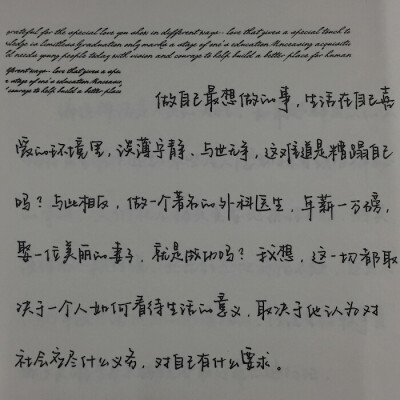 grateful for the special love you share in different ways - love that gives a special touch to
ledge is limitless Graduation only marks a stage of one's education. Increasing acquisite
ld needs young people today with vision and courage to help build a better place for human
fferent ways - love that gives a spe
a stage of one's education. Increasin
courage to help build a better place
做自己最想做的事,生活在自己喜
爱的环境里,淡薄宁静、与世无争,这难道是糟蹋自己
吗?与此相反,做一个著名的外科医生,年薪一万磅,
娶一位美丽的妻子,就是成功吗?我想,这一切都取
决于一个人如何看待生活的意义,取决于他认为对
社会应尽什么义务,对自己有什么要求。